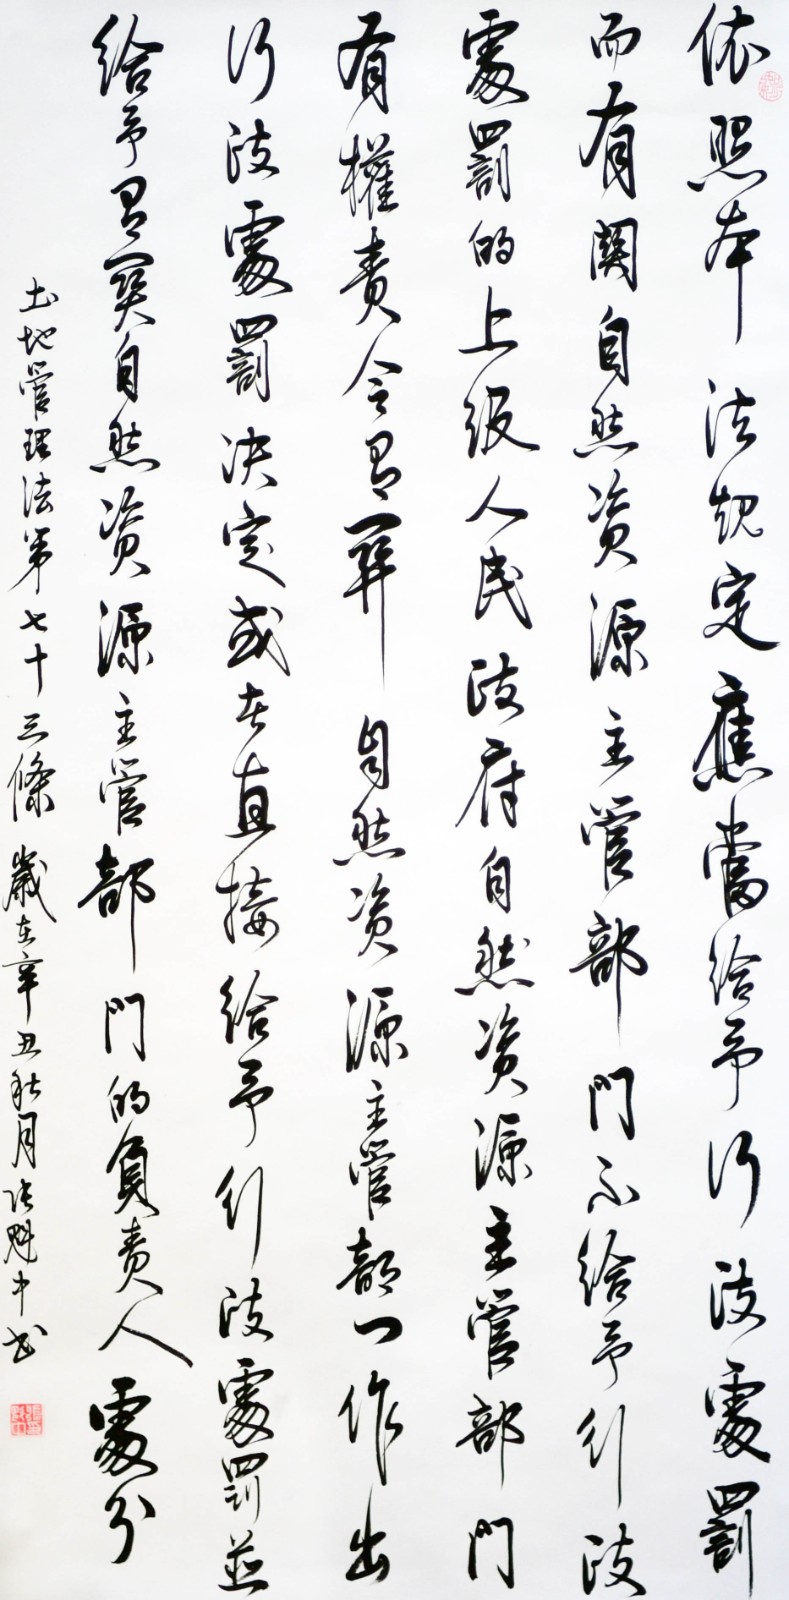 依照本法規定應當給予行政處罰
而有関自然資源主管部門不給予行政
處罰的上级人民政府自然資源主管部門
有權责令有関自然資源主管部门作出
行政處罰决定或者直接給予行政處罰並
給予有関自然資源主管部門的負责人處分
土地管理法第七十三條 歲在辛丑秋月张魁中书